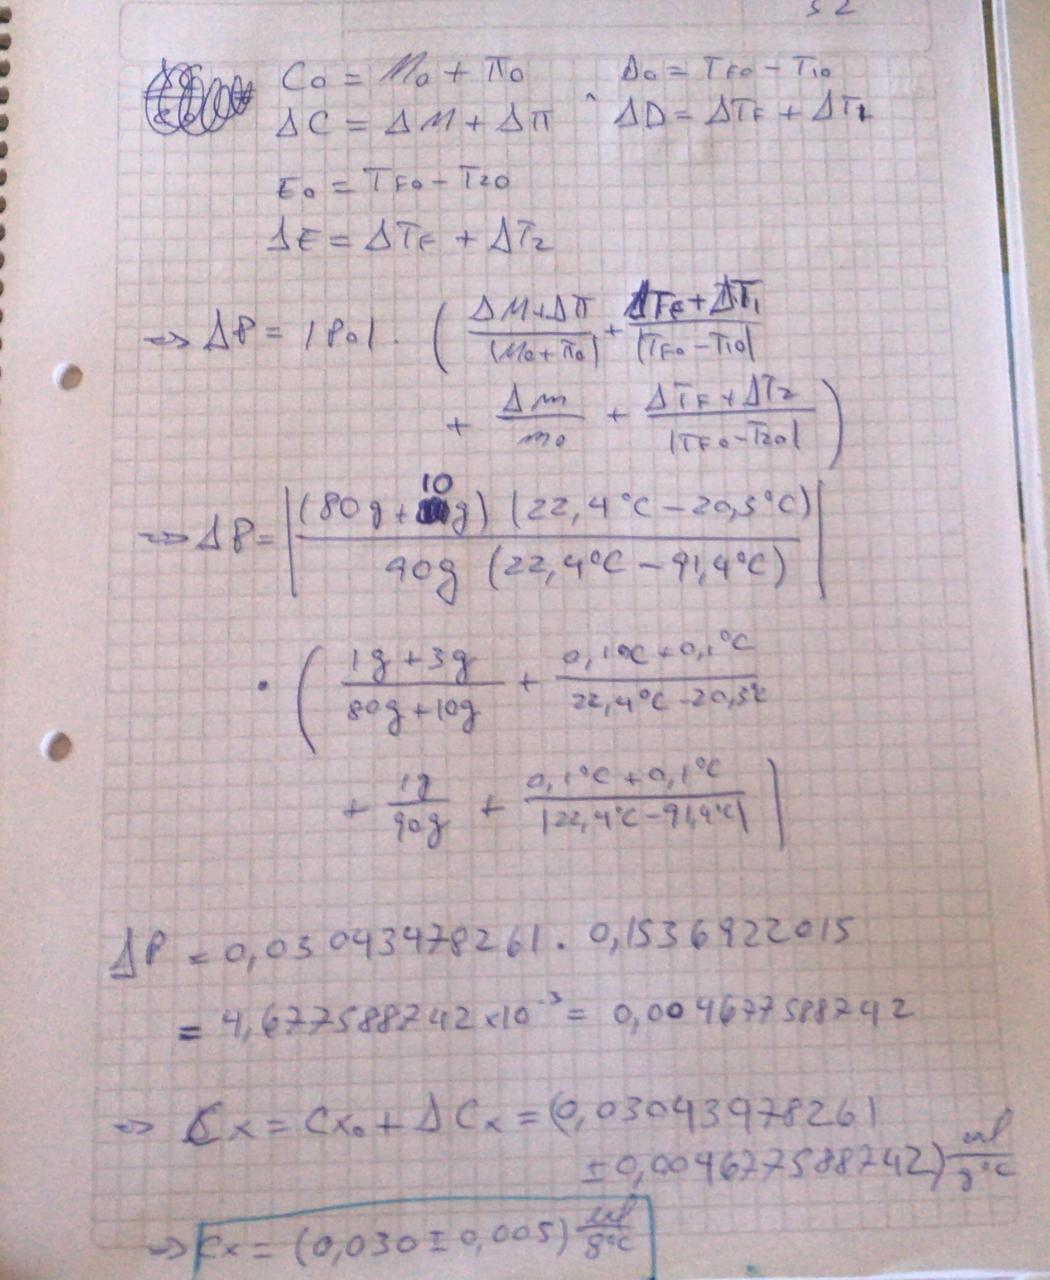 52
C₀ = M₀ + π₀    D₀ = TF₀ - T₁₀
ΔC = ΔM + Δπ    ΔD = ΔTF + ΔT₁
E₀ = TF₀ - T₂₀
ΔE = ΔTF + ΔT₂
=> ΔP = |P₀| · ( (ΔM+Δπ)/|M₀+π₀| + (ΔTF+ΔT₁)/|TF₀-T₁₀|
+ Δm/m₀ + (ΔTF+ΔT₂)/|TF₀-T₂₀| )
=> ΔP = | (80g+10g) (22,4°C-20,3°C) / 90g (22,4°C-91,4°C) |
· ( (1g+3g)/(80g+10g) + (0,1°C+0,1°C)/(22,4°C-20,3°C)
+ 1g/90g + (0,1°C+0,1°C)/|22,4°C-91,4°C| )
ΔP = 0,03043478261 . 0,1536922015
= 4,677588742 x10⁻³ = 0,004677588742
=> Cx = Cx₀ + ΔCx = (0,03043978261
± 0,004677588742) cal/g°C
=> Cx = (0,030 ± 0,005) cal/g°C